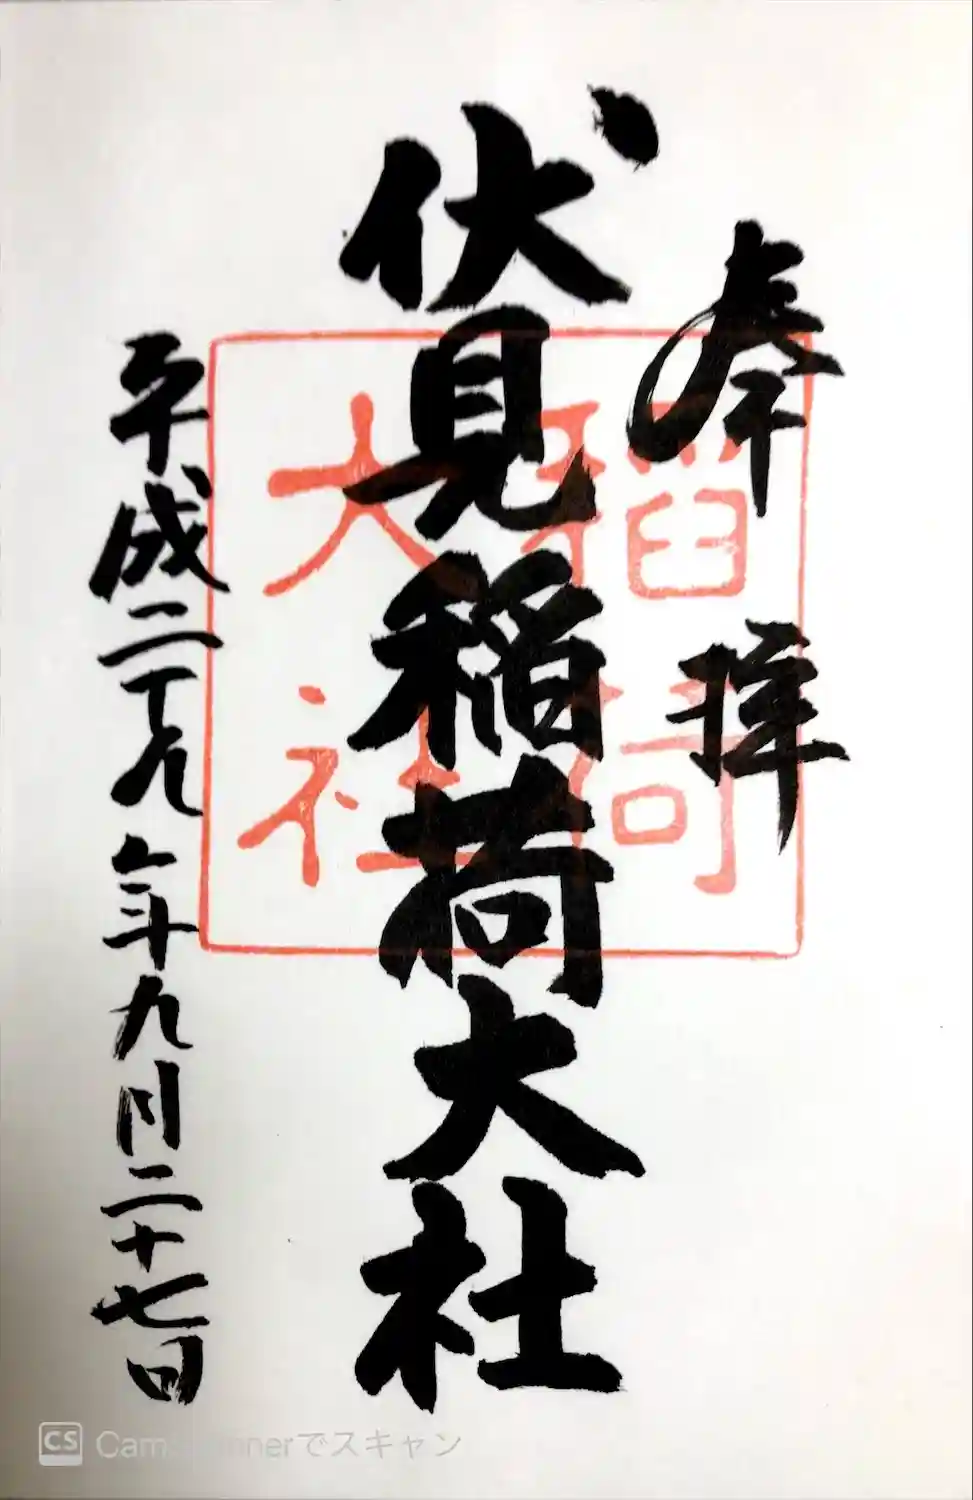 奉拝
伏見稲荷大社
平成二十九年九月二十七日
稲荷
大社
CS CamScannerでスキャン